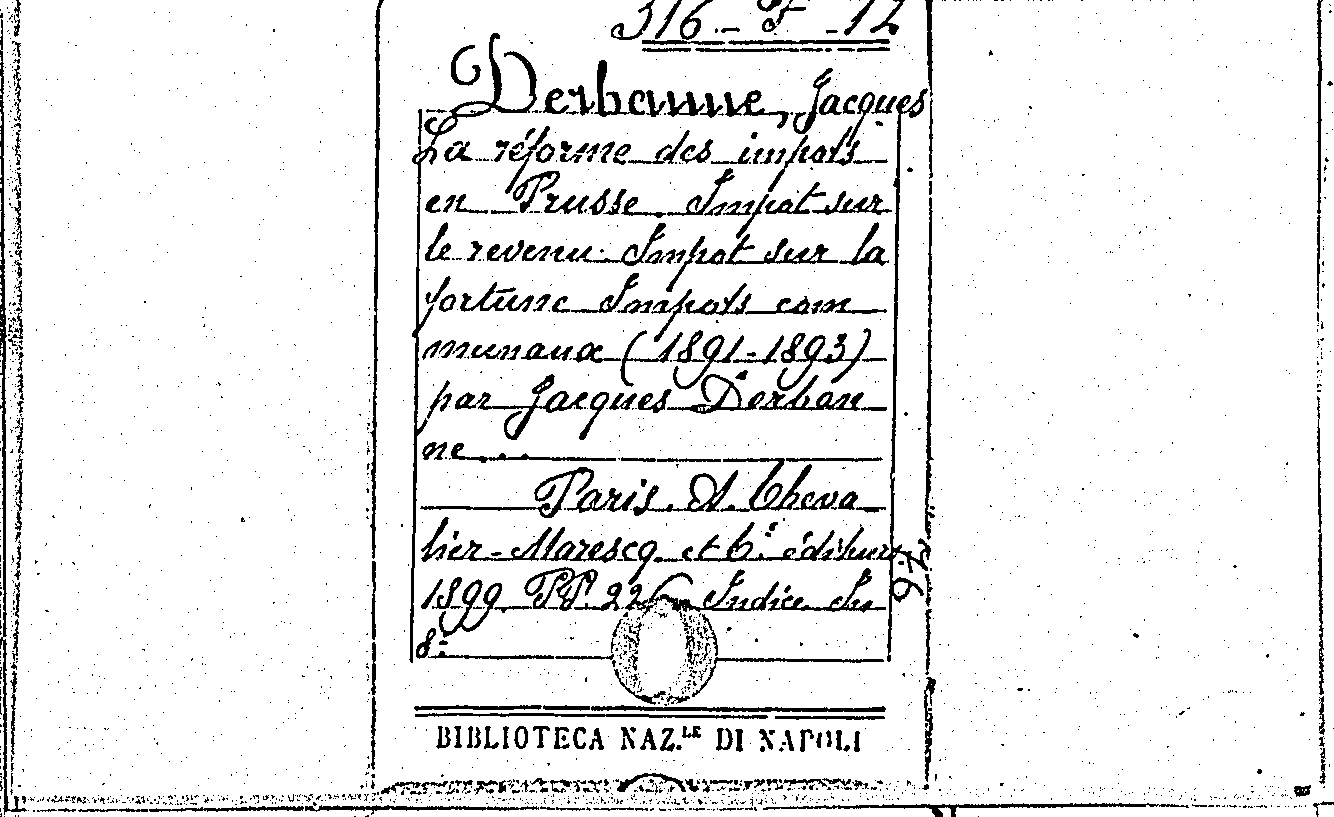 316 - F - 12
Derbanne, Jacques
La réforme des impots
en Prusse. Impot sur
le revenu. Impot sur la
fortune Impots com
munaux (1891-1893)
par Jacques Derban
ne...
Paris. A. Cheva
lier-Marescq et C.ⁱ éditeurs
1899. PP. 226 Indice. In
8:
92
BIBLIOTECA NAZ.LE DI NAPOLI